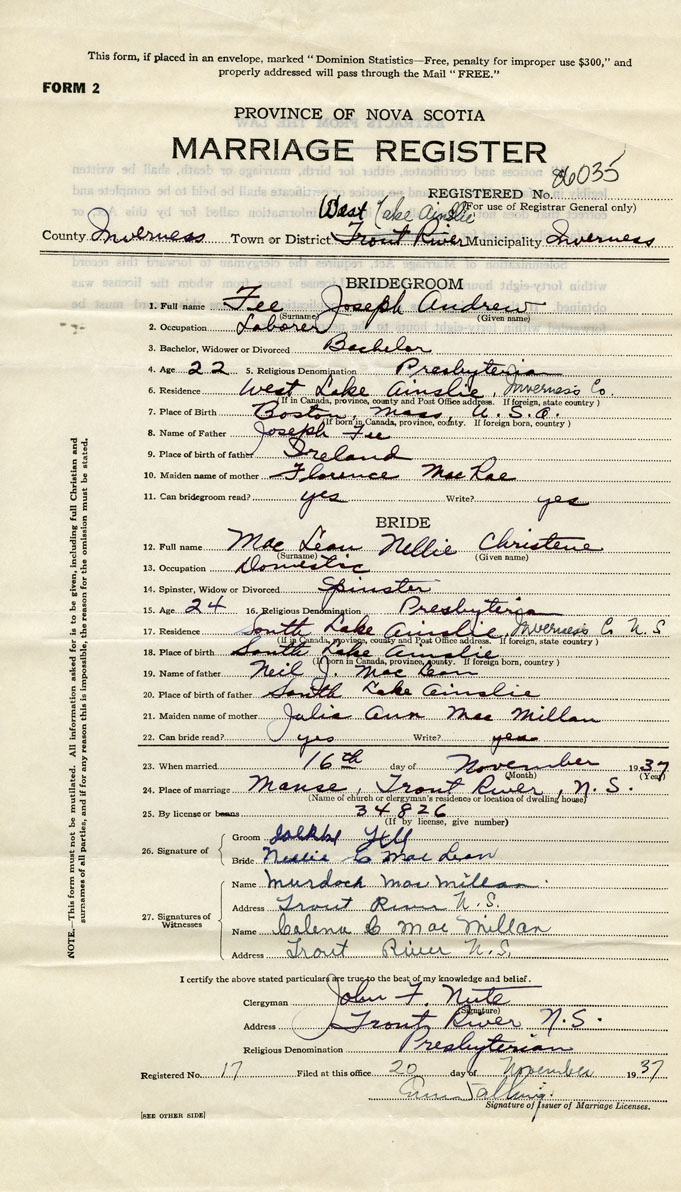 This form, if placed in an envelope, marked "Dominion Statistics—Free, penalty for improper use $300," and
properly addressed will pass through the Mail "FREE."
FORM 2
PROVINCE OF NOVA SCOTIA
MARRIAGE REGISTER
86035
REGISTERED No.
(For use of Registrar General only)
West Lake Ainslie
County Inverness Town or District Trout River Municipality Inverness
BRIDEGROOM
1. Full name Fee Joseph Andrew
(Surname) (Given name)
2. Occupation Laborer
3. Bachelor, Widower or Divorced Bachelor
4. Age 22 5. Religious Denomination Presbyterian
6. Residence West Lake Ainslie, Inverness Co.
(If in Canada, province, county and Post Office address. If foreign, state country)
7. Place of Birth Boston, Mass, U.S.A.
(If born in Canada, province, county. If foreign born, country)
8. Name of Father Joseph Fee
9. Place of birth of father Ireland
10. Maiden name of mother Florence MacRae
11. Can bridegroom read? yes Write? yes
BRIDE
12. Full name MacLean Nellie Christene
(Surname) (Given name)
13. Occupation Domestic
14. Spinster, Widow or Divorced Spinster
15. Age 24 16. Religious Denomination Presbyterian
17. Residence South Lake Ainslie, Inverness Co N.S
(If in Canada, province, county and Post Office address. If foreign, state country)
18. Place of birth South Lake Ainslie
(If born in Canada, province, county. If foreign born, country)
19. Name of father Neil J. MacLean
20. Place of birth of father South Lake Ainslie
21. Maiden name of mother Julia Ann MacMillan
22. Can bride read? yes Write? yes
23. When married 16th day of November 1937
(Month) (Year)
24. Place of marriage Manse, Trout River, N.S.
(Name of church or clergyman's residence or location of dwelling house)
25. By license or banns 34826
(If by license, give number)
26. Signature of
Groom
Bride Nellie C MacLean
27. Signatures of Witnesses
Name Murdoch MacMillan
Address Trout River N.S.
Name C MacMillan
Address Trout River N.S.
I certify the above stated particulars are true to the best of my knowledge and belief.
Clergyman John F. Nute
(Signature)
Address Trout River N.S.
Religious Denomination Presbyterian
Registered No. 17 Filed at this office 20 day of November 1937
Signature of Issuer of Marriage Licenses.
[SEE OTHER SIDE]
NOTE.—This form must not be mutilated. All information asked for is to be given, including full Christian and
surnames of all parties, and if for any reason this is impossible, the reason for the omission must be stated.